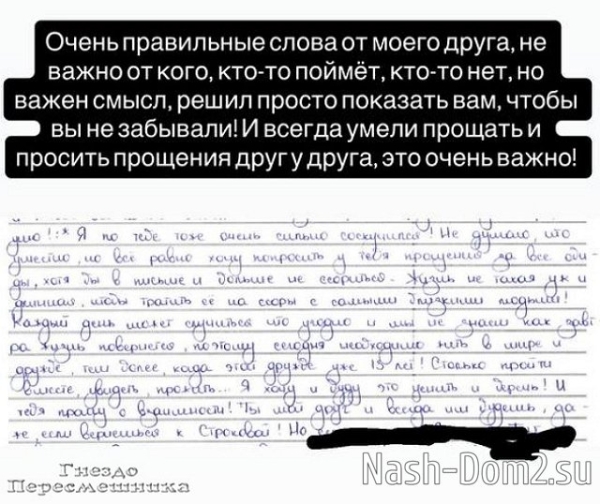 Очень правильные слова от моего друга, не
важно от кого, кто-то поймёт, кто-то нет, но
важен смысл, решил просто показать вам, чтобы
вы не забывали! И всегда умели прощать и
просить прощения друг у друга, это очень важно!
Я по тебе тоже очень сильно соскучился! Не думаю, что
уместно, но всё равно хочу попросить у тебя прощения за все оби-
ды, хотя бы в письме и больше не ссориться. Жизнь не такая уж и
длинная, чтобы тратить её на ссоры с самыми близкими людьми!
Каждый день может случиться что угодно и мы не знаем как завт
ра жизнь повернётся, поэтому сегодня необходимо жить в мире и
дружбе, тем более, когда этой дружбе уже 15 лет! Столько пройти
вместе, увидеть, прожить... Я хочу и буду это ценить и беречь! И
тебя прошу о взаимности! Ты мой друг и всегда им будешь, да-
же, если вернёшься к Строковой! Но
Гнездо
Пересмешника
Nash-Dom2.su